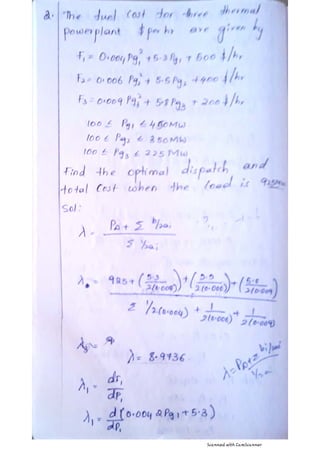 2. The fuel cost for three thermal
powerplant $ per hr are given by
F₁ = 0.004 Pg₁² + 5.3 Pg₁ + 500 $/hr
F₂ = 0.006 Pg₂² + 5.5 Pg₂ + 400 $/hr
F₃ = 0.009 Pg₃² + 5.8 Pg₃ + 200 $/hr
100 ≤ Pg₁ ≤ 450MW
100 ≤ Pg₂ ≤ 350MW
100 ≤ Pg₃ ≤ 225MW
Find the optimal dispatch and
total cost when the load is 925MW
Sol:
λ = PD + Σ bi/2ai
Σ 1/2ai
λ = 925 + (5.3/2(0.004)) + (5.5/2(0.006)) + (5.8/2(0.009))
Σ 1/2(0.004) + 1/2(0.006) + 1/2(0.009)
λ = 8.9736
λ = PD + Σ bi/2ai
1/2ai
λ₁ = dF₁
dP₁
λ₁ = d(0.004 2Pg₁ + 5.3)
dP₁
Scanned with CamScanner